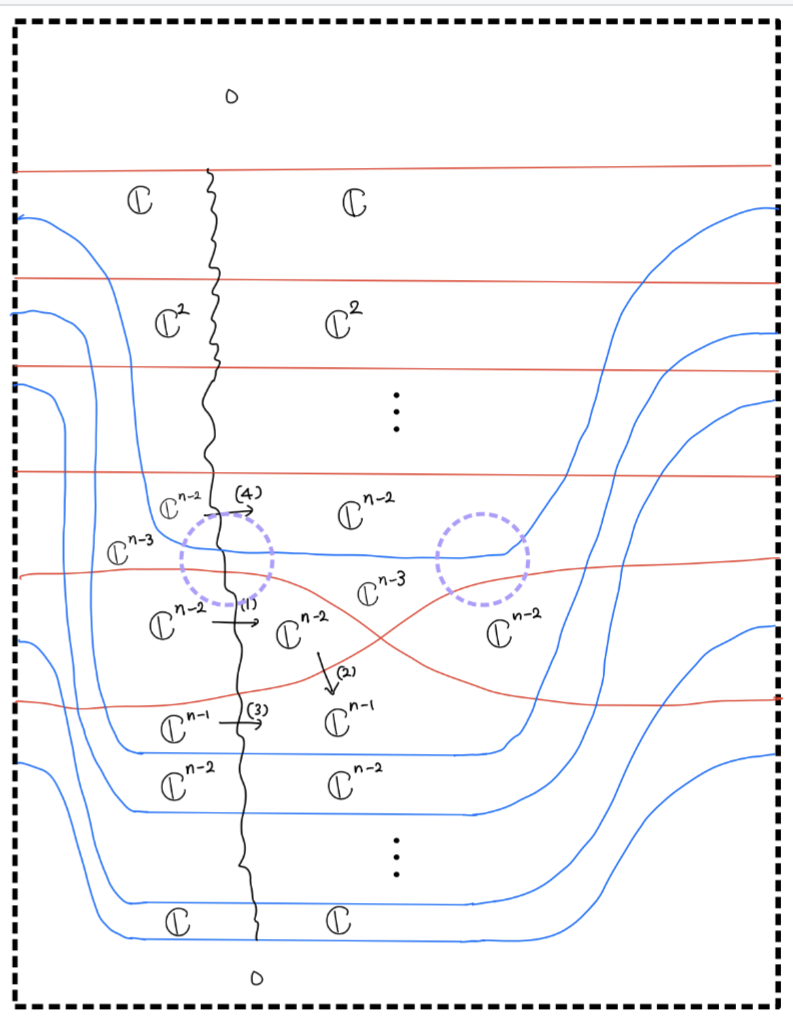 0
ℂ ℂ
ℂ² ℂ²
⋮
ℂⁿ⁻² (4) ℂⁿ⁻²
ℂⁿ⁻³
ℂⁿ⁻³
ℂⁿ⁻² (1) ℂⁿ⁻² ℂⁿ⁻²
(2)
ℂⁿ⁻¹ (3) ℂⁿ⁻¹
ℂⁿ⁻² ℂⁿ⁻²
⋮
ℂ ℂ
0